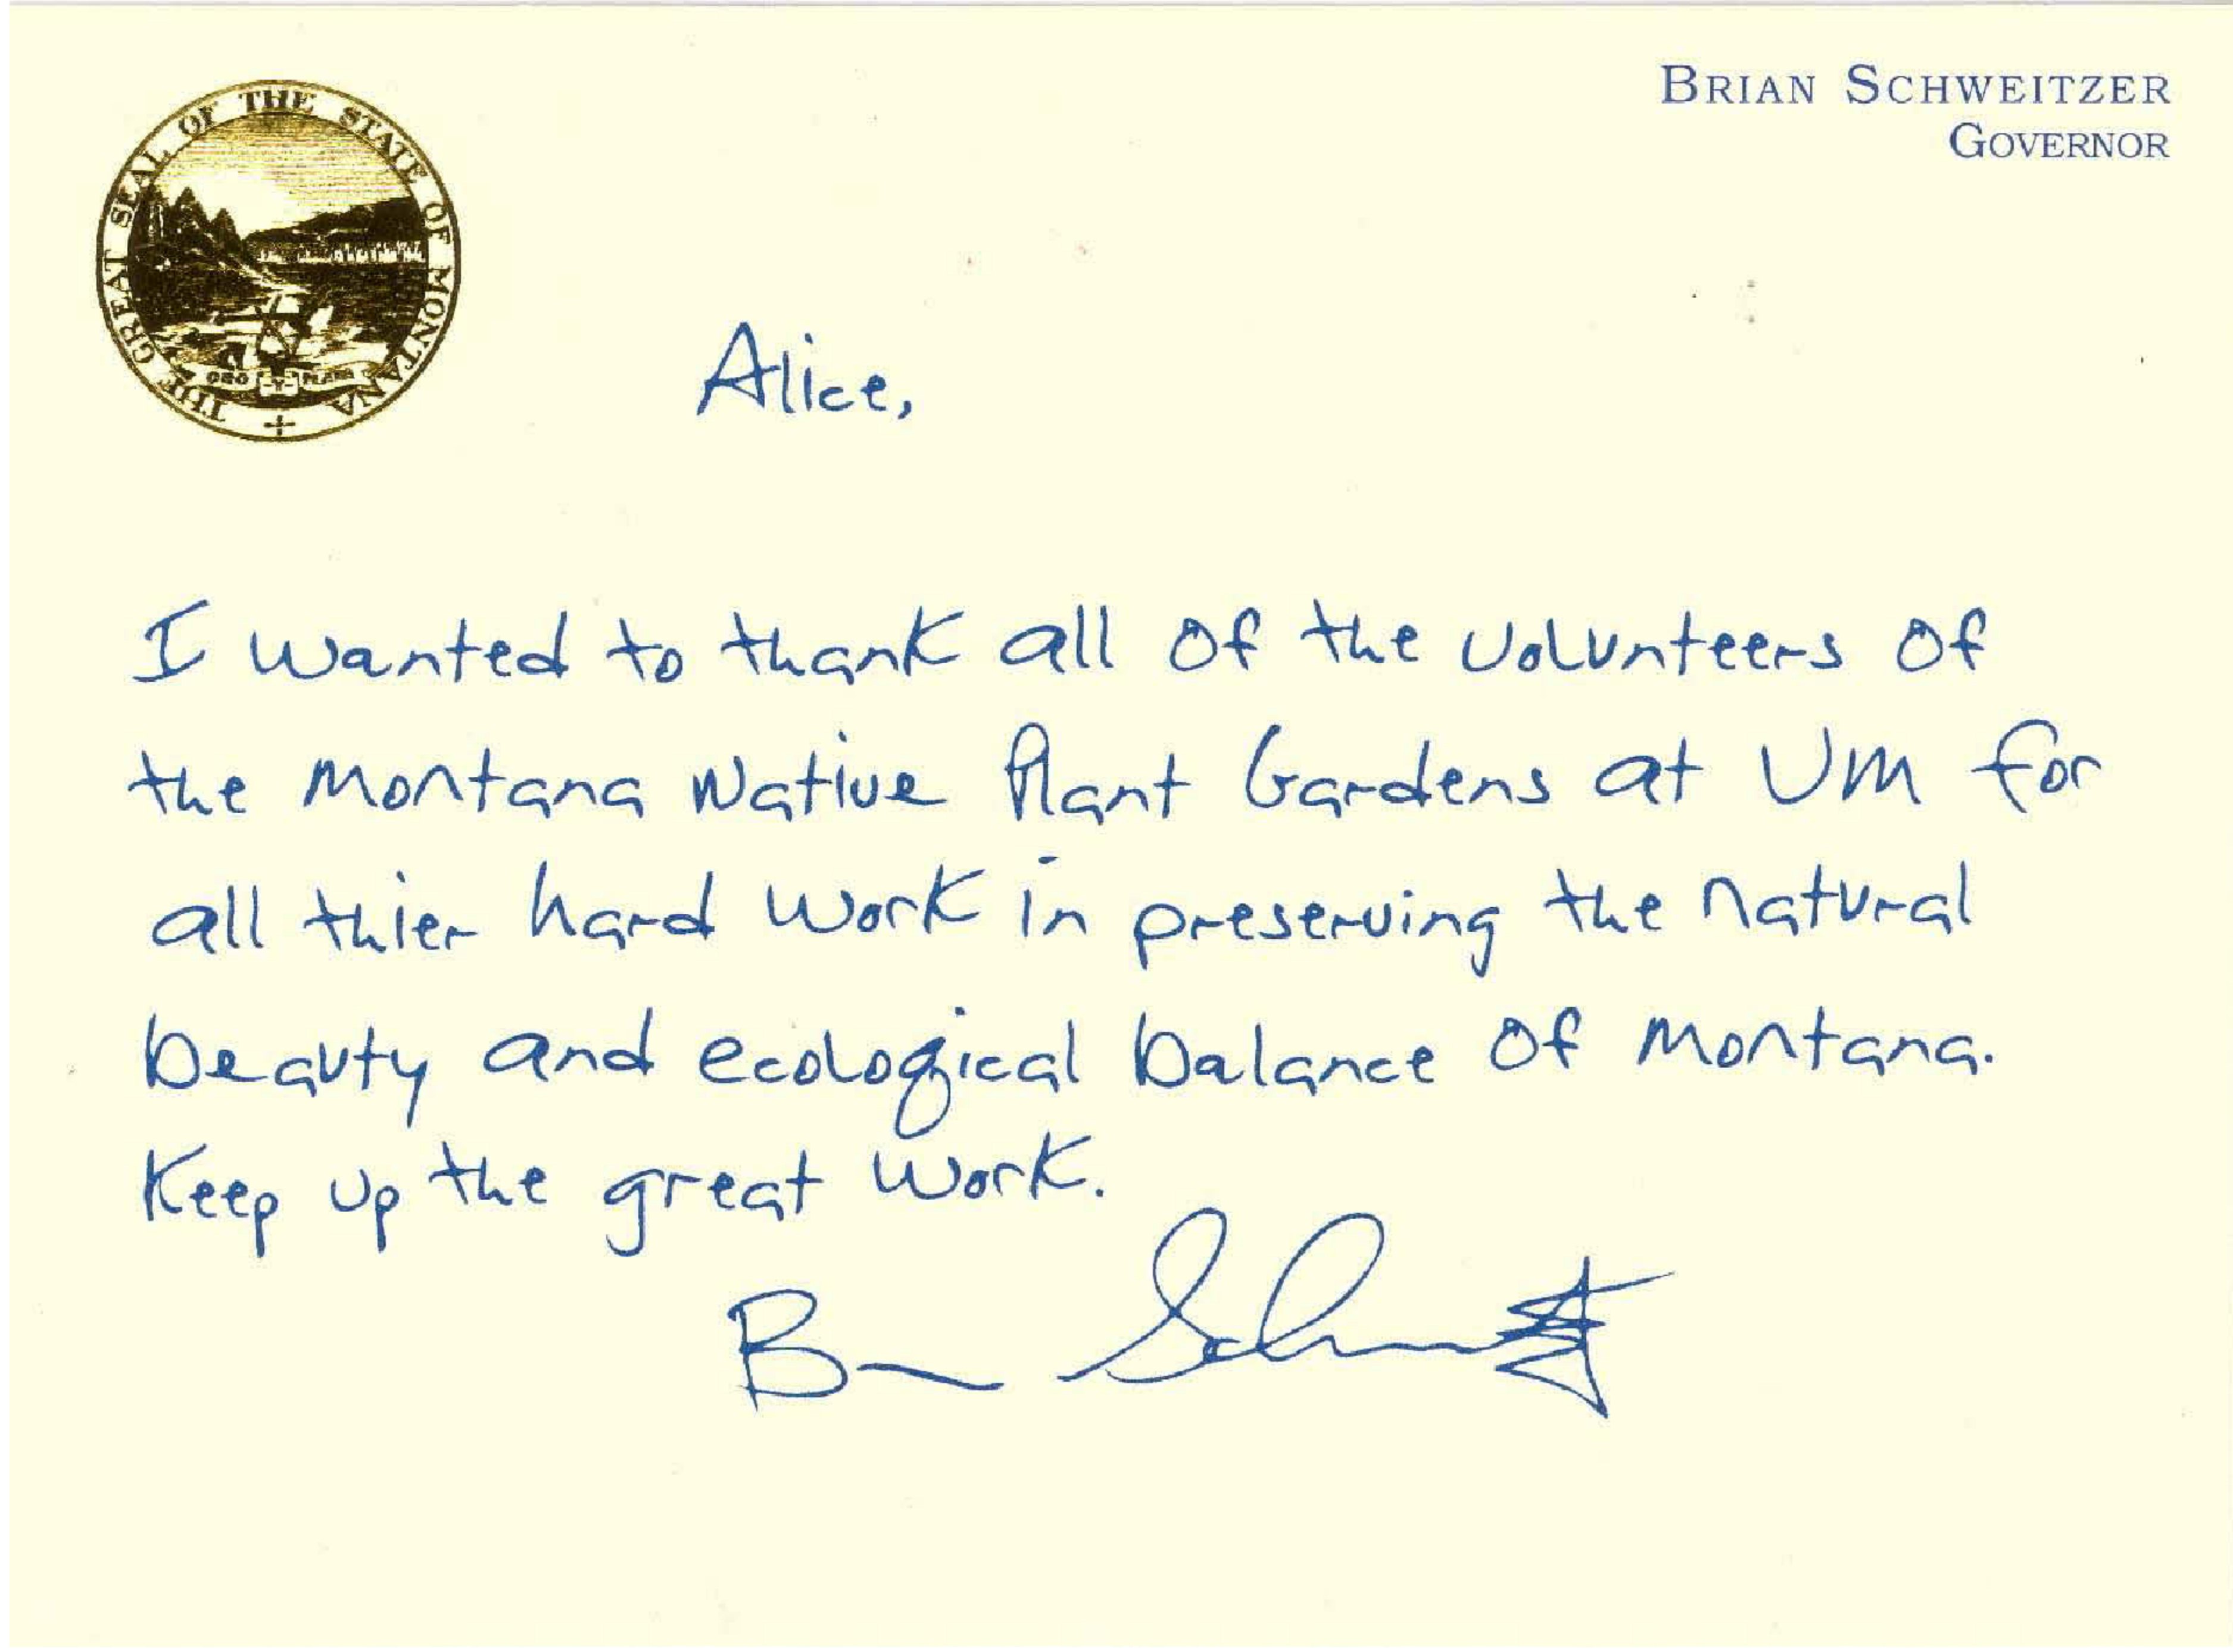 THE GREAT SEAL OF THE STATE OF MONTANA
ORO Y PLATA
BRIAN SCHWEITZER
GOVERNOR
Alice,
I wanted to thank all of the volunteers of
the Montana Native Plant Gardens at UM for
all thier hard work in preserving the natural
beauty and ecological balance of Montana.
Keep up the great work.
B Schweitzer